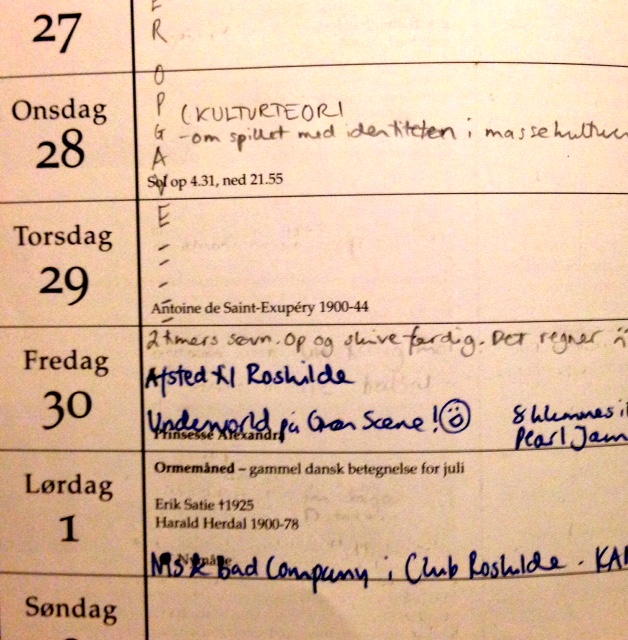 27
E
R
O
P
G
A
V
E
Onsdag
28
(KULTURTEORI
-om spillet med identiteten i massekultur
Sol op 4.31, ned 21.55
Torsdag
29
Antoine de Saint-Exupéry 1900-44
Fredag
30
2 timers søvn. Op og skive færdig. Det regner
Afsted til Roskilde
Underworld på Grøn Scene!
8 klemmes i
Pearl Jam
Prinsesse Alexandra
Lørdag
1
Ormemåned – gammel dansk betegnelse for juli
Erik Satie †1925
Harald Herdal 1900-78
Nymåne
Ms & Bad Company i Club Roskilde - KA
Søndag